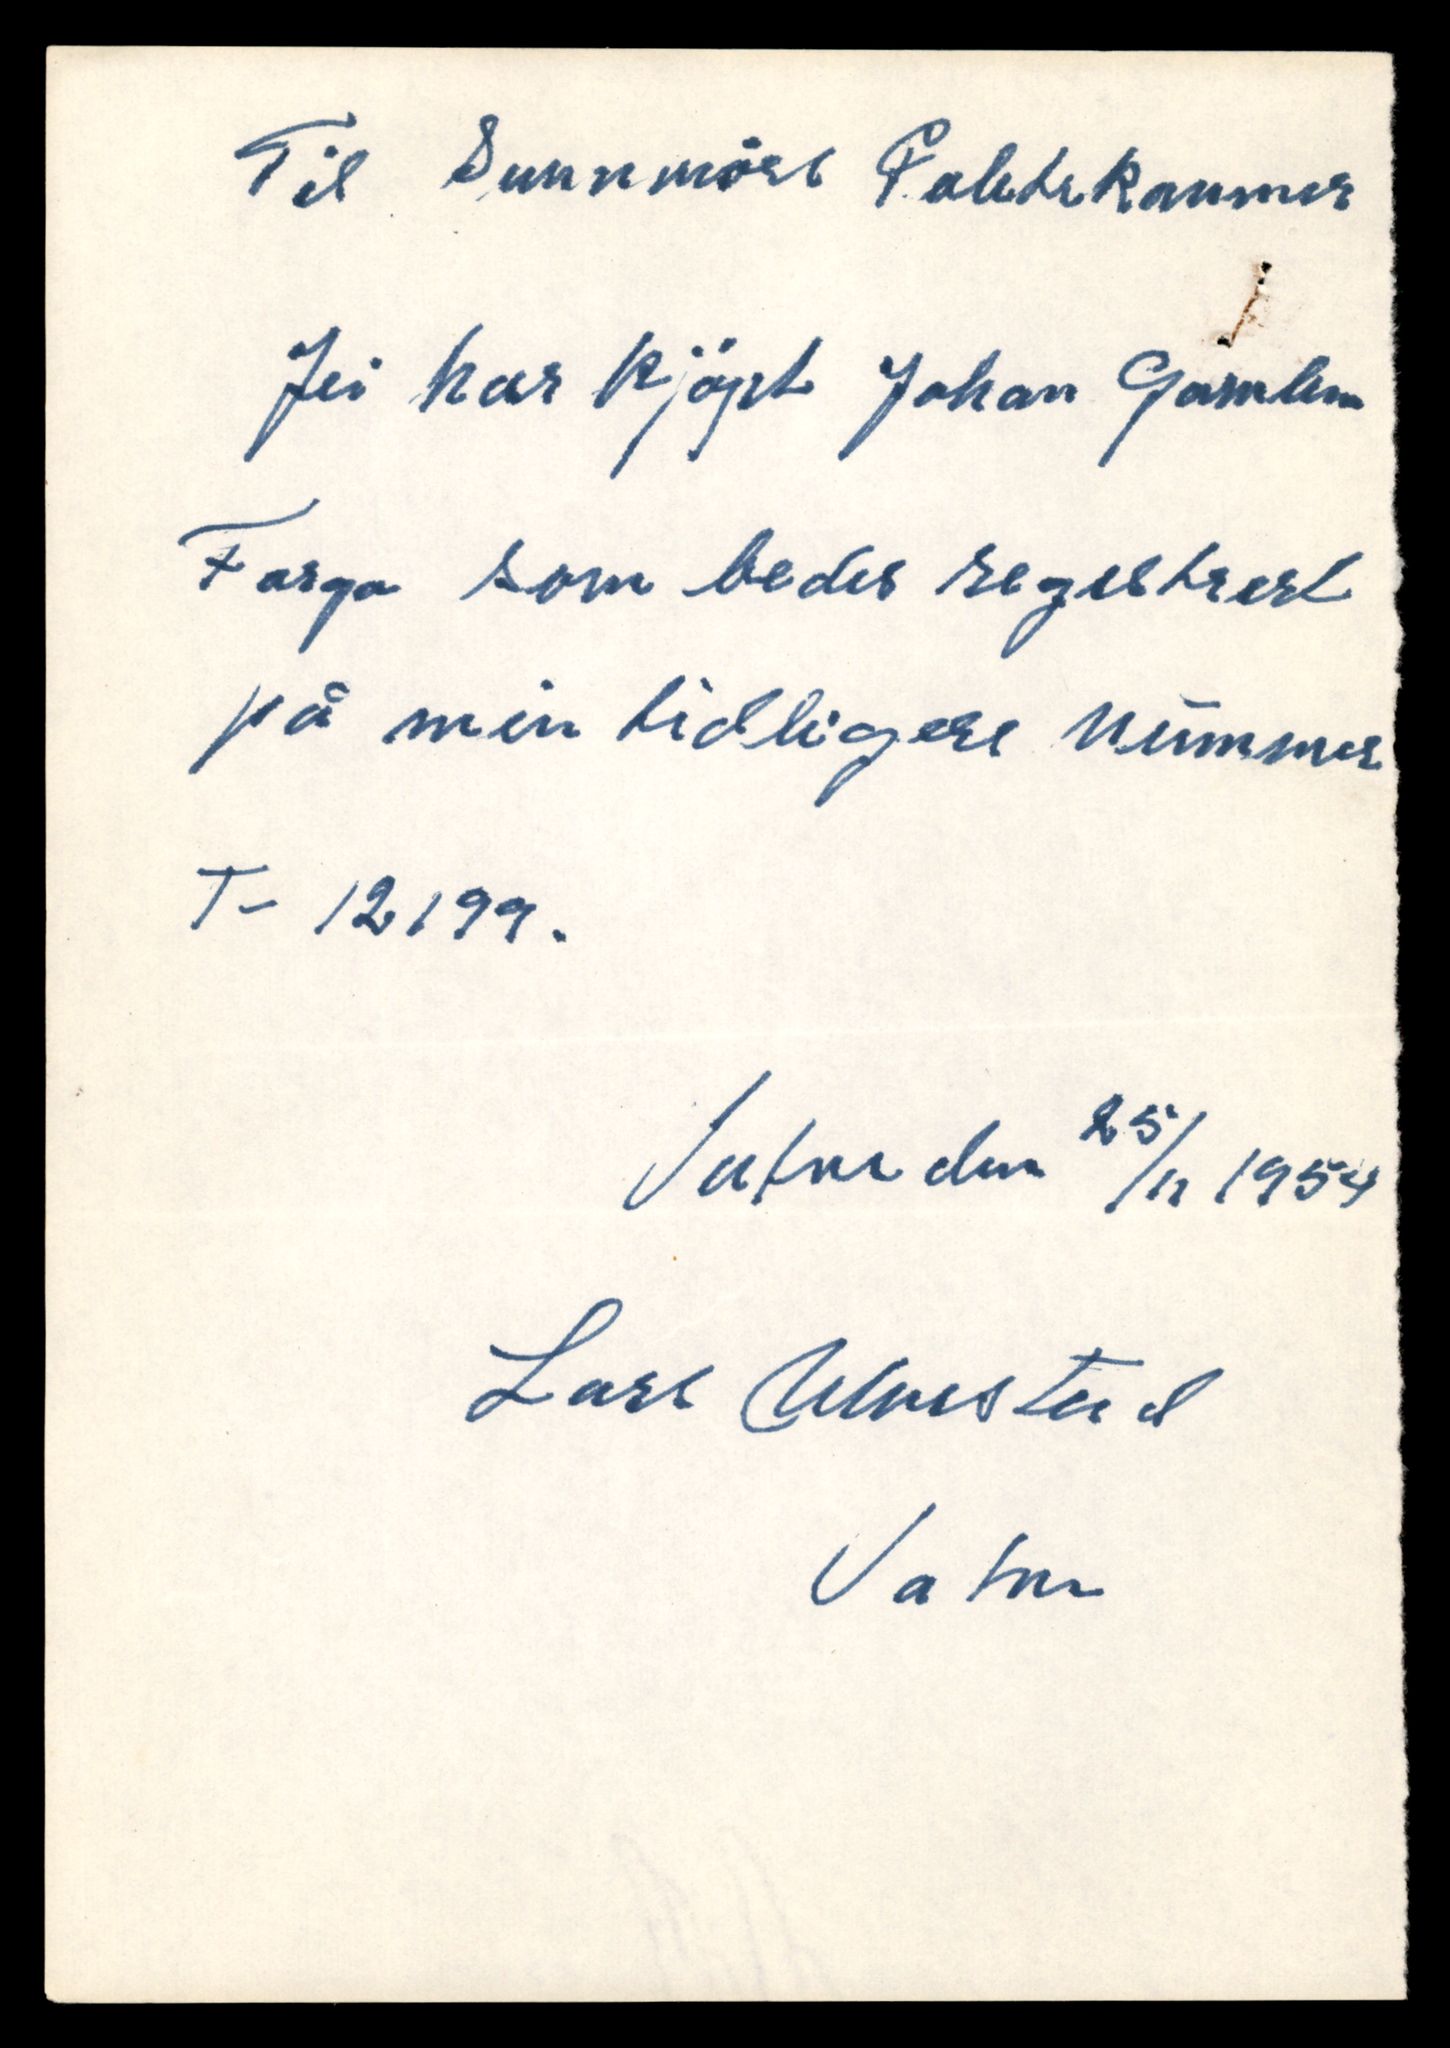 Til Sunnmöre Fohtekammer
Jei har kjöpt Johan Gamlem
Fargo som bedes registrert
på min tidligere nummer
T- 12199.
Vatne den 25/11 1954
Lars Ulvestad
Vatne